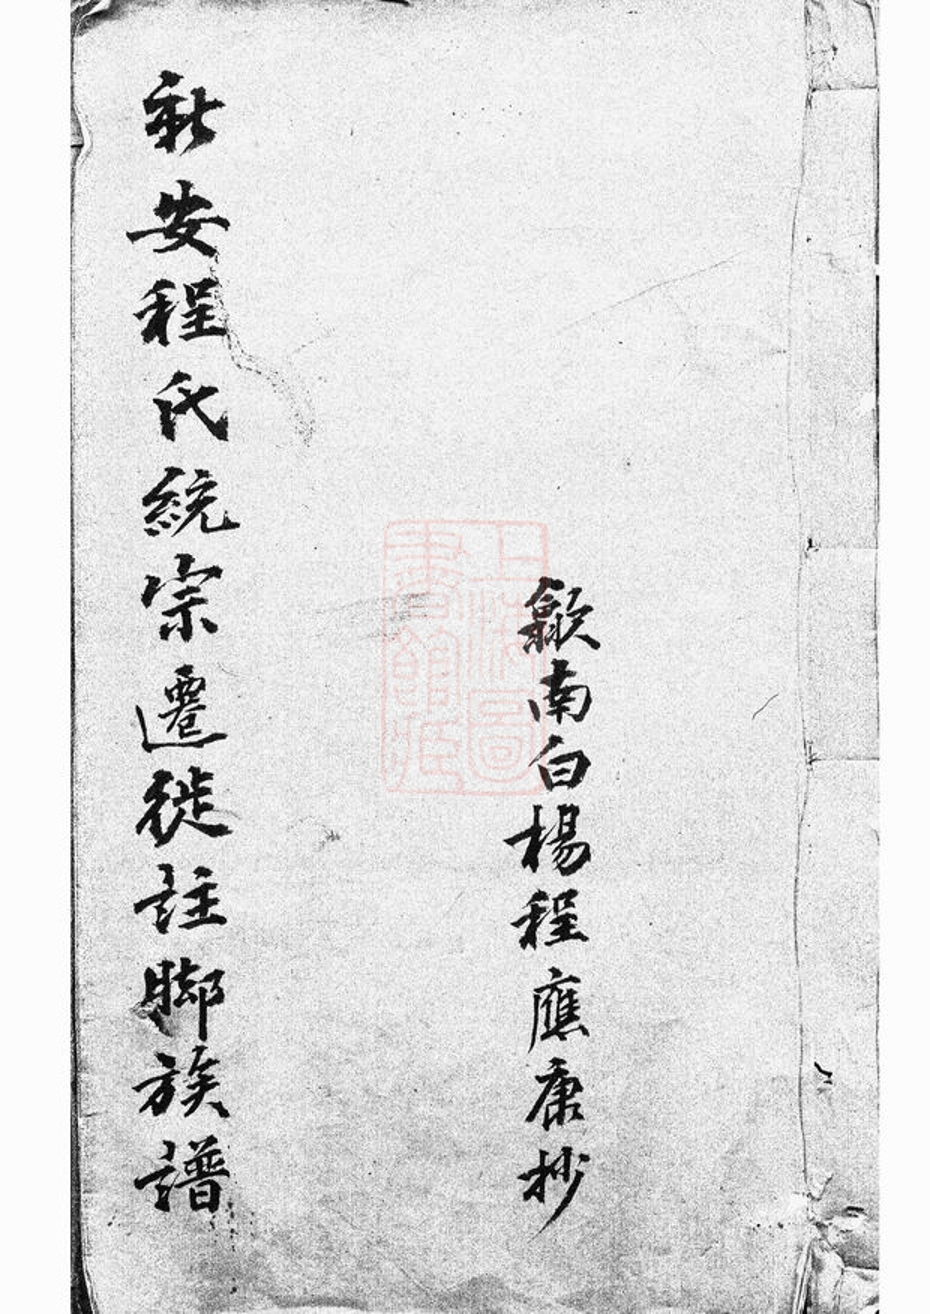 歙南白楊程應康抄
新安程氏統宗遷徙註脚族譜
上海圖
書館藏